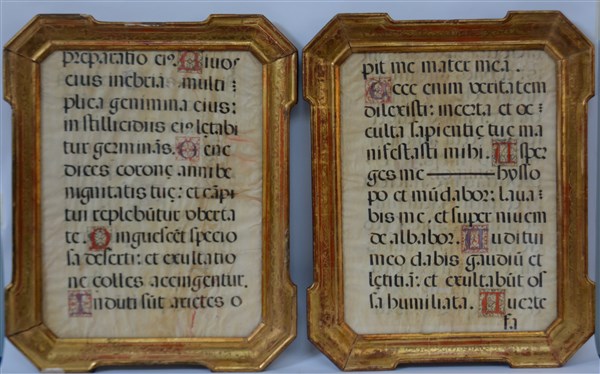 preparatio eiꝰ. Riuos
eius inebria multi=
plica genimina eius:
in stillicidiis eiꝰ lętabi
tur germinās. Bene
dices coronę anni be
nignitatis tuę: et cāpi
tui replebūtur uberta
te. Pinguescēt specio
sa deserti: et exultatio
ne colles accingentur.
Induti sūt arietes o
pit me mater mea.
Ecce enim veritatem
dilexisti: incerta et oc=
culta sapientię tuę ma
nifestasti mihi. Asper
ges me hysso
po et mūdabor: laua=
bis me, et super niuem
dealbabor. Auditui
meo dabis gaudiū et
lętitiā: et exultabūt os
sa humiliata. Auerte
fa